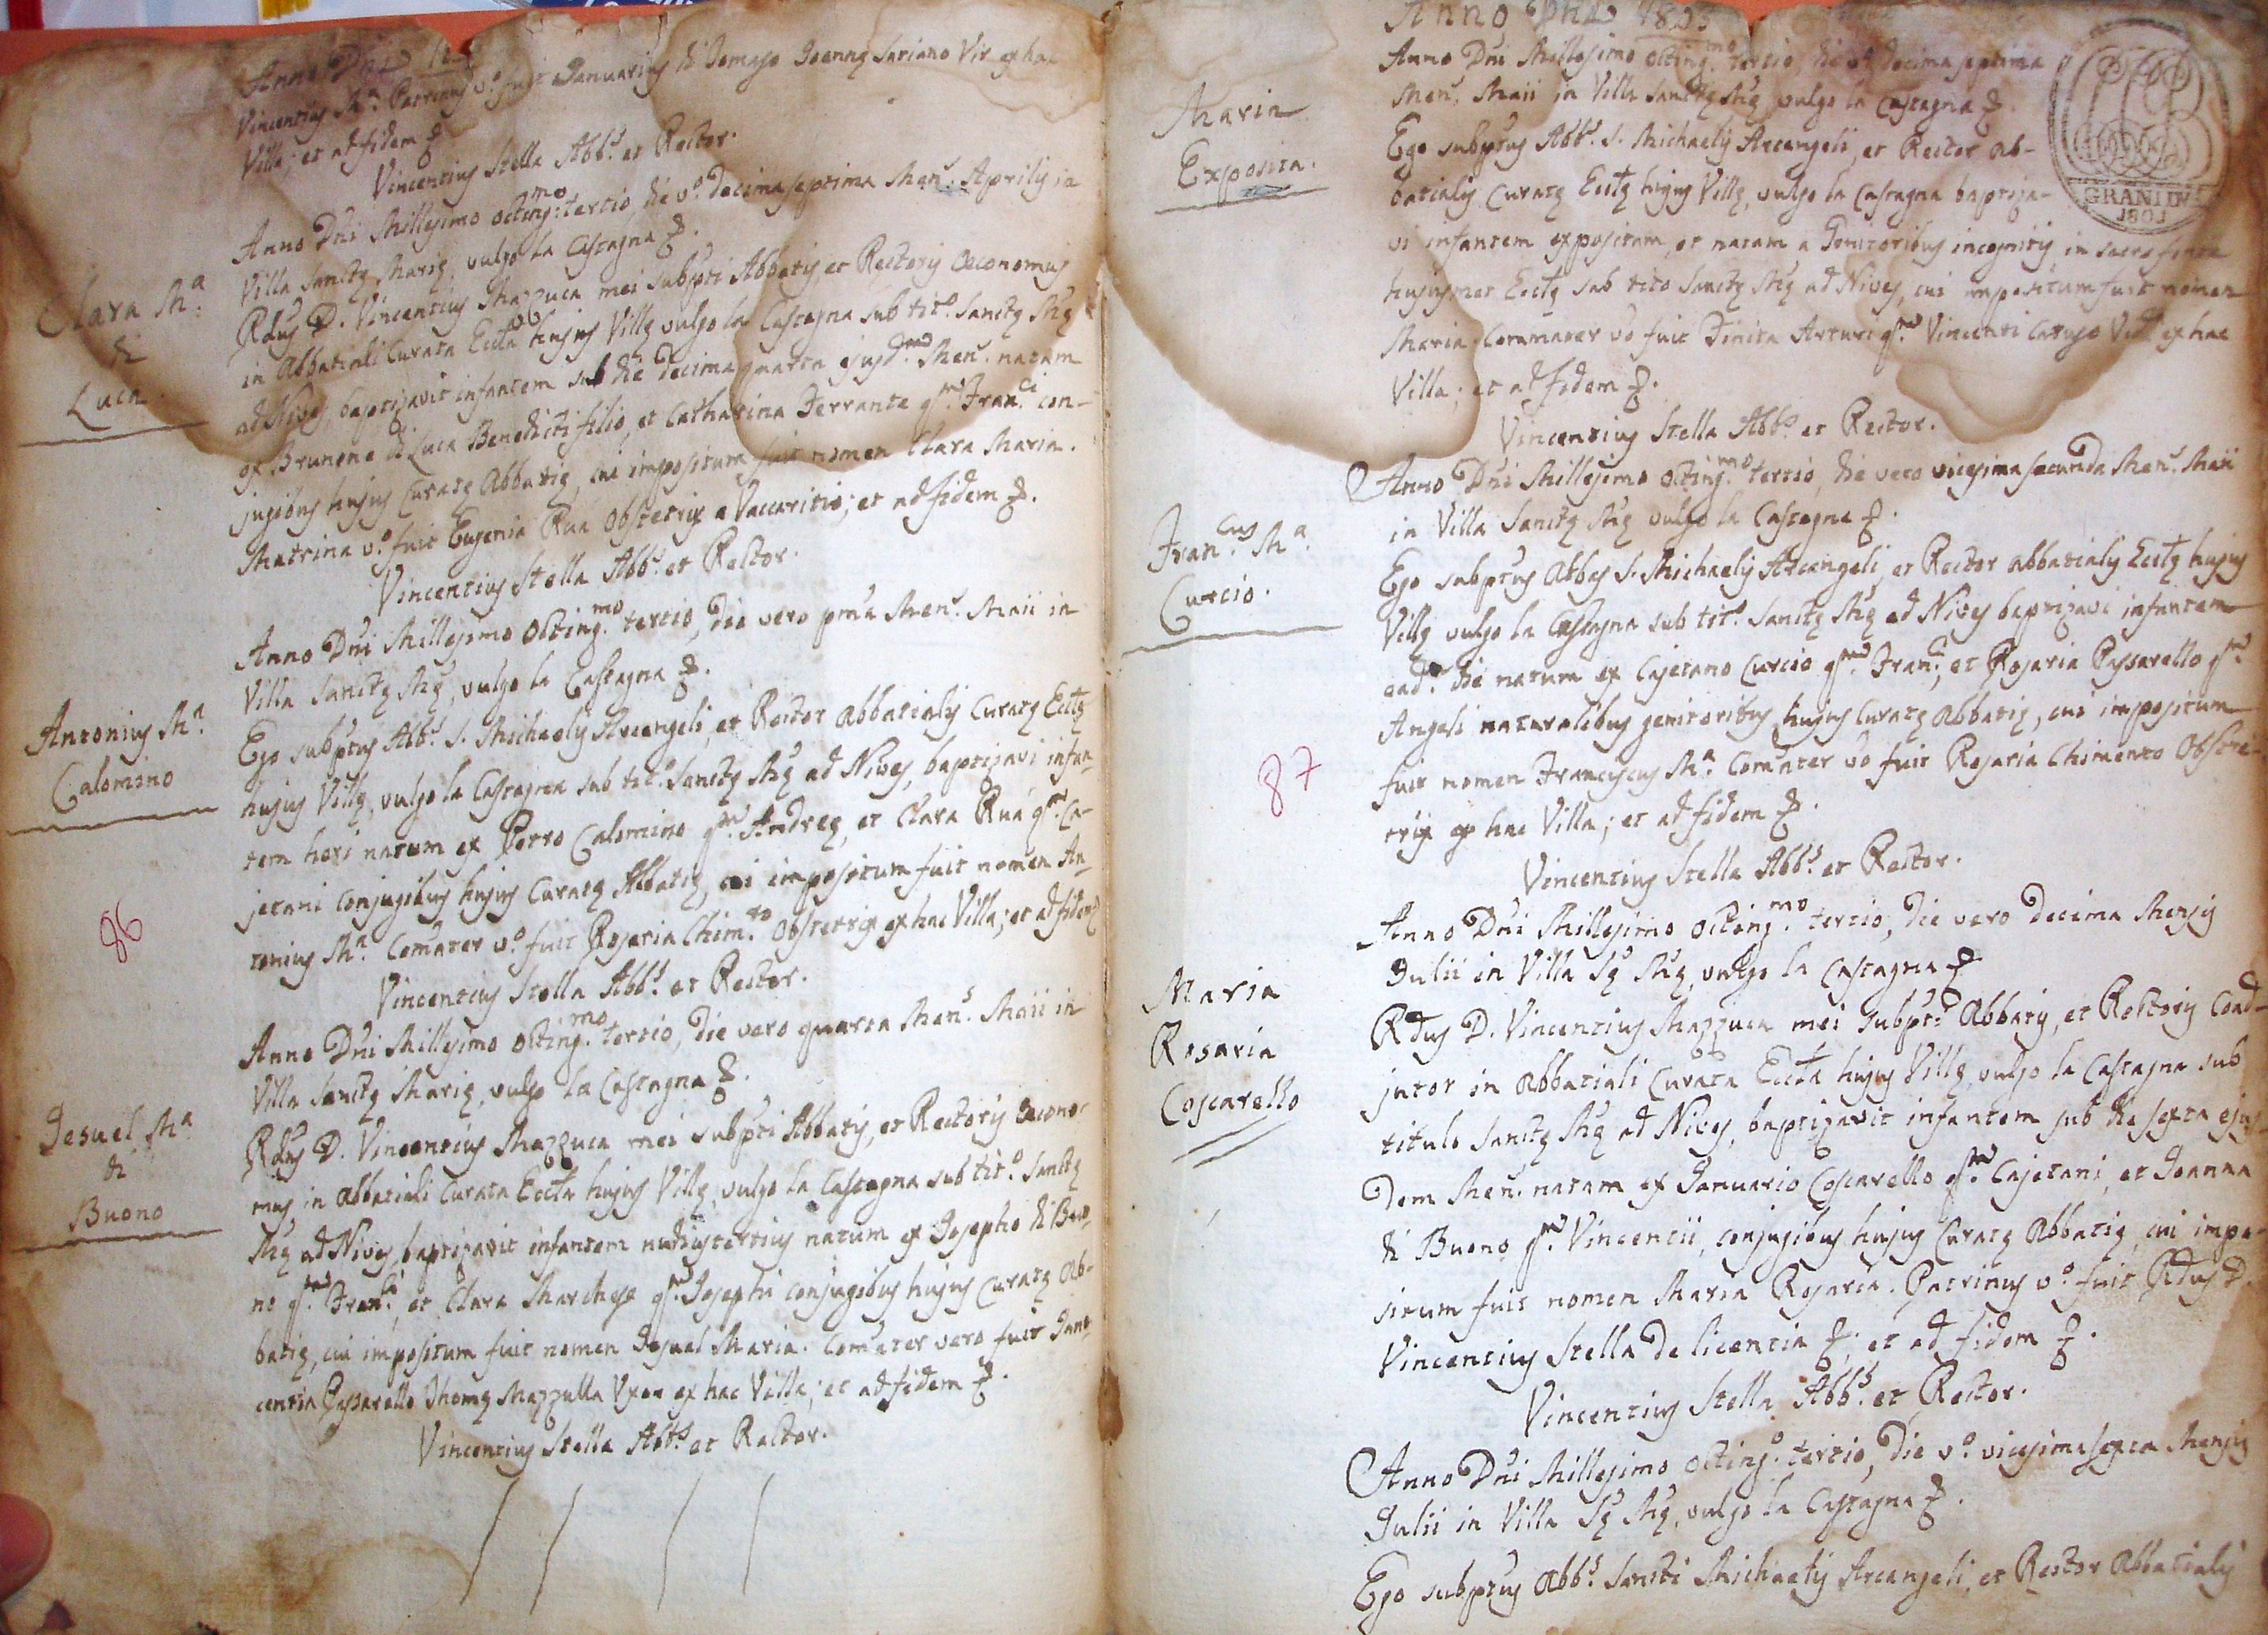 Anno Dni 18
Vincentius Ma. Patrinus vo. fuit Januarius di Tomaso Joannis Sariano Vir ex hac
Villa; et ad fidem &.
Vincentius Stella Abbs. et Rector.
Clara Ma.
di
Luca.
Anno Dni Millesimo octing.mo tertio, die vo. decimaseptima Mens. Aprilis in
Villa Sanctę Marię, vulgo la Castagna &.
Rdus D. Vincentius Mazzuca mei subpti Abbatis, et Rectoris Oeconomus
in Abbatiali Curata Eccta hujus Villę vulgo la Castagna sub tito. Sanctę Mę
ad Nives, baptizavit infantem sub die decimaquarta ejusd.m Mens. natam
ex Brunone di Luca Benedicti filio, et Catharina Ferrante qm. Fran.ci con-
jugibus hujus Curatę Abbatię, cui impositum fuit nomen Clara Maria.
Matrina vo. fuit Eugenia Rua Obstetrix a Vaccaritio; et ad fidem &.
Vincentius Stella Abbs. et Rector.
Antonius Ma.
Calomino
Anno Dni Millesimo octing.mo tertio, die vero pma Mens. Maii in
Villa Sanctę Mę, vulgo la Castagna &.
Ego subptus Abbs. S. Michaelis Arcangeli, et Rector Abbatialis Curatę Ecctę
hujus Villę, vulgo la Castagna sub tito. Sanctę Mę ad Nives, baptizavi infan-
tem heri natum ex Petro Calomino qm. Andreę, et Clara Rua qm. Ca-
jetani conjugibus hujus Curatę Abbatię, cui impositum fuit nomen An-
tonius Ma. Comater vo. fuit Rosaria Chim.to Obstetrix ex hac Villa; et ad fidem &
86
Vincentius Stella Abbs. et Rector.
Jesuel Ma.
di
Buono
Anno Dni Millesimo octing.mo tertio, die vero quarta Mens. Maii in
Villa Sanctę Marię, vulgo la Castagna &.
Rdus D. Vincentius Mazzuca mei subpti Abbatis, et Rectoris Oecono-
mus in Abbatiali Curata Eccta hujus Villę, vulgo la Castagna sub tito. Sanctę
Mę ad Nives, baptizavit infantem nudiustertius natum ex Josepho di Buo-
no qm. Fran.ci, et Clara Marchese qm. Josephi conjugibus hujus Curatę Ab-
batię, cui impositum fuit nomen Jesuel Maria. Comater vero fuit Inno-
centia Passarello Thomę Mazzulla Uxor ex hac Villa; et ad fidem &.
Vincentius Stella Abbs. et Rector.
Anno Dni 1803
Maria
Exposita.
Anno Dni Millesimo octing.mo tertio, die vo. decimaseptima
Mens. Maii in Villa Sanctę Mę, vulgo la Castagna &.
Ego subptus Abbs. S. Michaelis Arcangeli, et Rector Ab-
batialis Curatę Ecctę hujus Villę, vulgo la Castagna baptiza-
vi infantem expositam, et natam a Genitoribus incognitis in sacro fonte
hujusmet Ecctę sub tito Sanctę Mę ad Nives, cui impositum fuit nomen
Maria. Commater vo fuit Finita Arturi qm. Vincenti Caruso Vid. ex hac
Villa; et ad fidem &.
Vincentius Stella Abbs. et Rector.
GRANI IV
1801
Fran.cus Ma.
Curcio.
Anno Dni Millesimo octing.mo tertio, die vero vicesima secunda Mens. Maii
in Villa Sanctę Mę vulgo la Castagna &.
Ego subptus Abbas S. Michaelis Arcangeli, et Rector Abbatialis Ecctę hujus
Villę vulgo la Castagna sub tito. Sanctę Mę ad Nives baptizavi infantem
ead. die natum ex Cajetano Curcio qm. Fran.ci, et Rosaria Passarello qm.
Angeli naturalibus genitoribus hujus Curatę Abbatię, cui impositum
fuit nomen Franciscus Ma. Comater vo fuit Rosaria Chimento Obste-
trix ex hac Villa; et ad fidem &.
87
Vincentius Stella Abbs. et Rector.
Maria
Rosaria
Coscarello
Anno Dni Millesimo octing.mo tertio, die vero decima Mensis
Julii in Villa Sę Mę, vulgo la Castagna &
Rdus D. Vincentius Mazzuca mei subpti Abbatis, et Rectoris Coad-
jutor in Abbatiali Curata Eccta hujus Villę, vulgo la Castagna sub
titulo Sanctę Mę ad Nives, baptizavit infantem sub die sexta ejus-
dem Mens. natam ex Januario Coscarello qm. Cajetani, et Joanna
di Buono qm. Vincentii, conjugibus hujus Curatę Abbatię, cui impo-
situm fuit nomen Maria Rosaria. Patrinus vo. fuit Rdus D.
Vincentius Stella de licentia &; et ad fidem &.
Vincentius Stella Abbs. et Rector.
Anno Dni Millesimo octing.o tertio, die vo. vicesimasexta Mensis
Julii in Villa Sę Mę, vulgo la Castagna &.
Ego subptus Abbs. Sancti Michaelis Arcangeli, et Rector Abbatialis